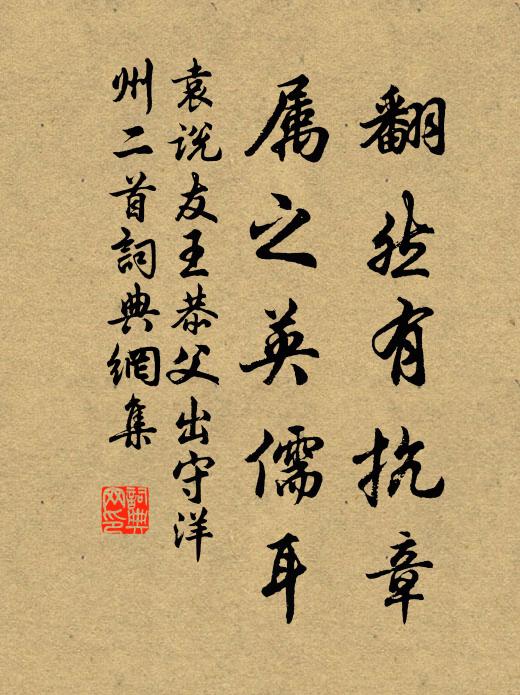 翻然有抗章
属之英儒耳
袁说友王恭父出守洋
州二首詞典網集
詞典網印